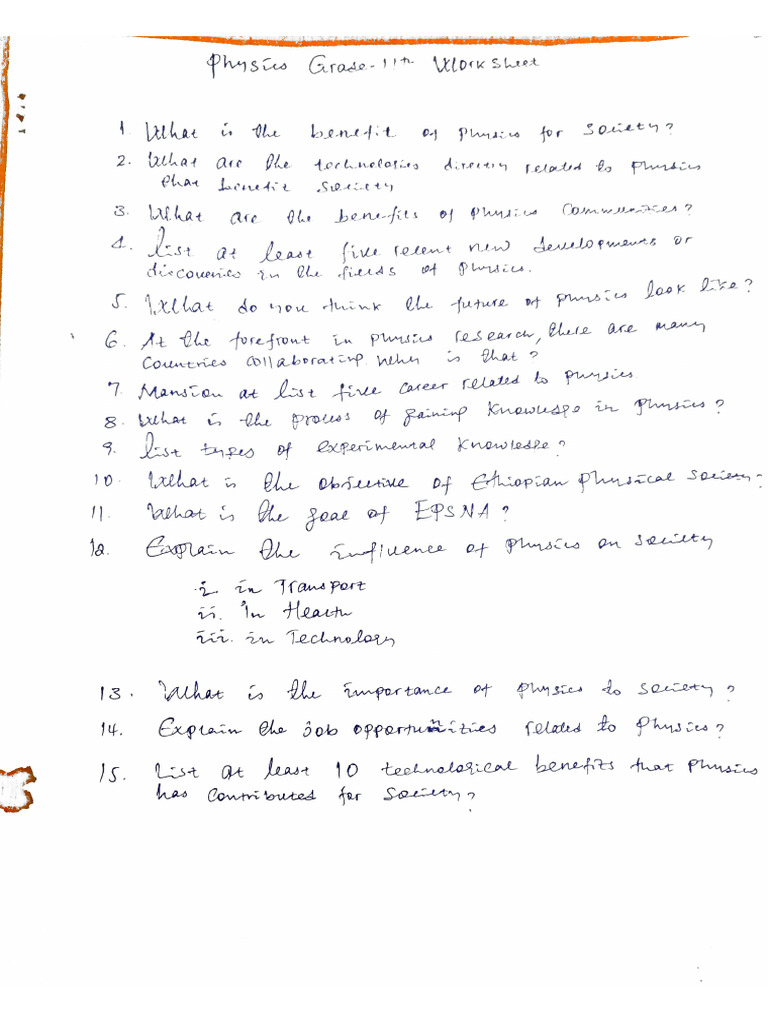 Physics Grade-11th Work Sheet
1. What is the benefit of physics for society?
2. What are the technologies directly related to physics
that benefit society
3. What are the benefits of physics Communities?
4. List at least five recent new developments or
discoveries in the fields of physics.
5. What do you think the future of physics look like?
6. At the forefront in physics research, there are many
Countries collaborating. Why is that?
7. Mansion at list five career related to physics.
8. What is the process of gaining knowledge in physics?
9. List types of experimental knowledge?
10. What is the objective of Ethiopian physical society?
11. What is the goal of EPSNA?
12. Explain the influence of physics on society
i. in Transport
ii. In Health
iii. in Technology
13. What is the importance of physics to society?
14. Explain the job opportunities related to physics?
15. List at least 10 technological benefits that physics
has contributed for society?